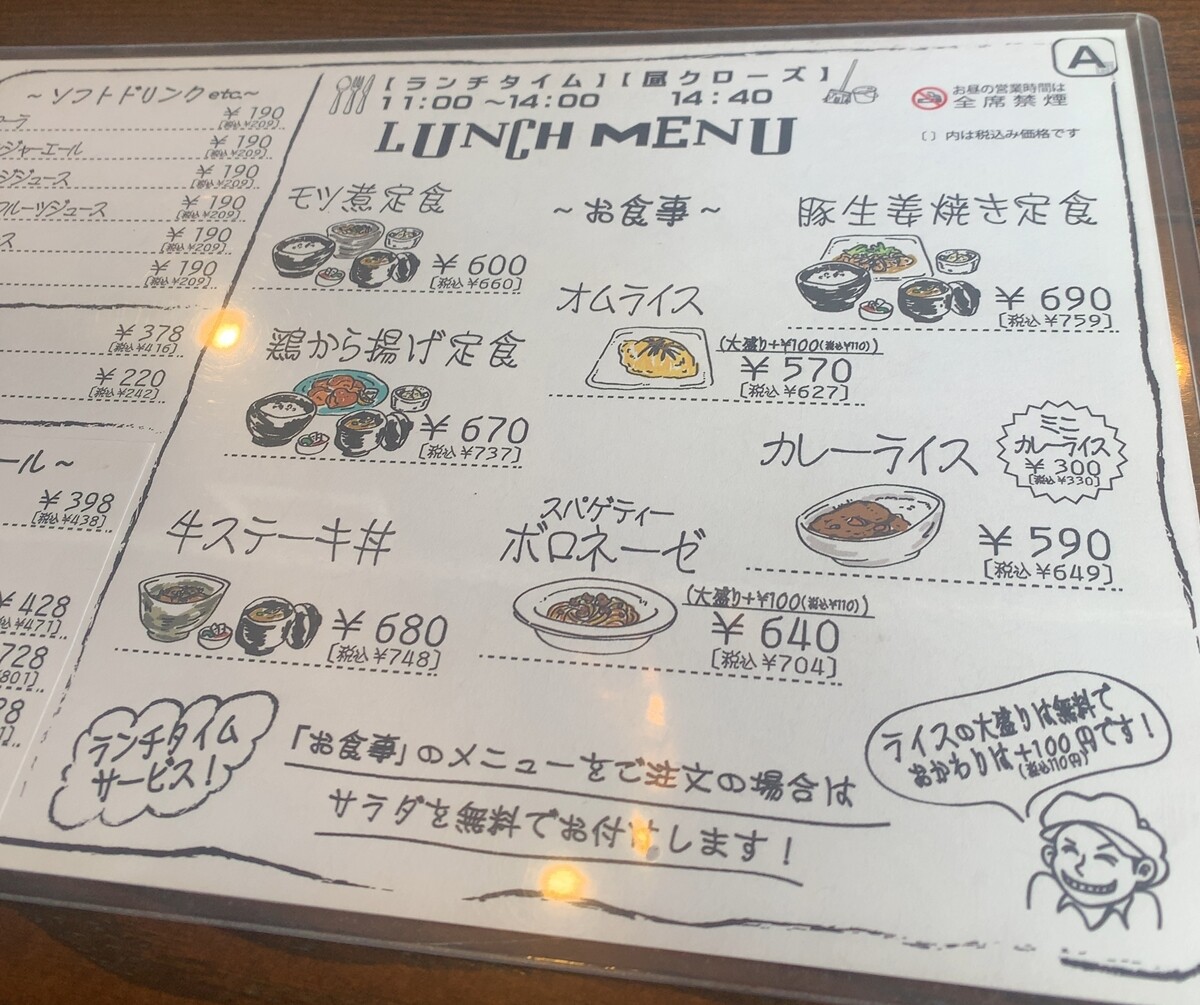 A
【ランチタイム】【昼クローズ】
11:00 ~14:00 14:40
お昼の営業時間は
全席禁煙
LUNCH MENU
〔 〕内は税込み価格です
~ソフトドリンクetc.~
¥190
[税込¥209]
ンジャーエール
¥190
[税込¥209]
ジジュース
¥190
[税込¥209]
フルーツジュース
¥190
[税込¥209]
ス
¥190
[税込¥209]
¥190
[税込¥209]
¥378
[税込¥416]
¥220
[税込¥242]
ール~
¥398
[税込¥438]
¥428
税込¥471]
728
801]
モツ煮定食
¥600
[税込¥660]
~お食事~
豚生姜焼き定食
¥690
[税込¥759]
オムライス
(大盛り+¥100(税込¥110))
¥570
[税込¥627]
鶏から揚げ定食
¥670
[税込¥737]
カレーライス
¥590
[税込¥649]
ミニ
カレーライス
¥300
[税込¥330]
牛ステーキ丼
¥680
[税込¥748]
スパゲティー
ボロネーゼ
(大盛り+¥100(税込¥110))
¥640
[税込¥704]
ランチタイム
サービス!
「お食事」のメニューをご注文の場合は
サラダを無料でお付けします!
ライスの大盛りは無料で
おかわりは+100円です!
(税込110円)